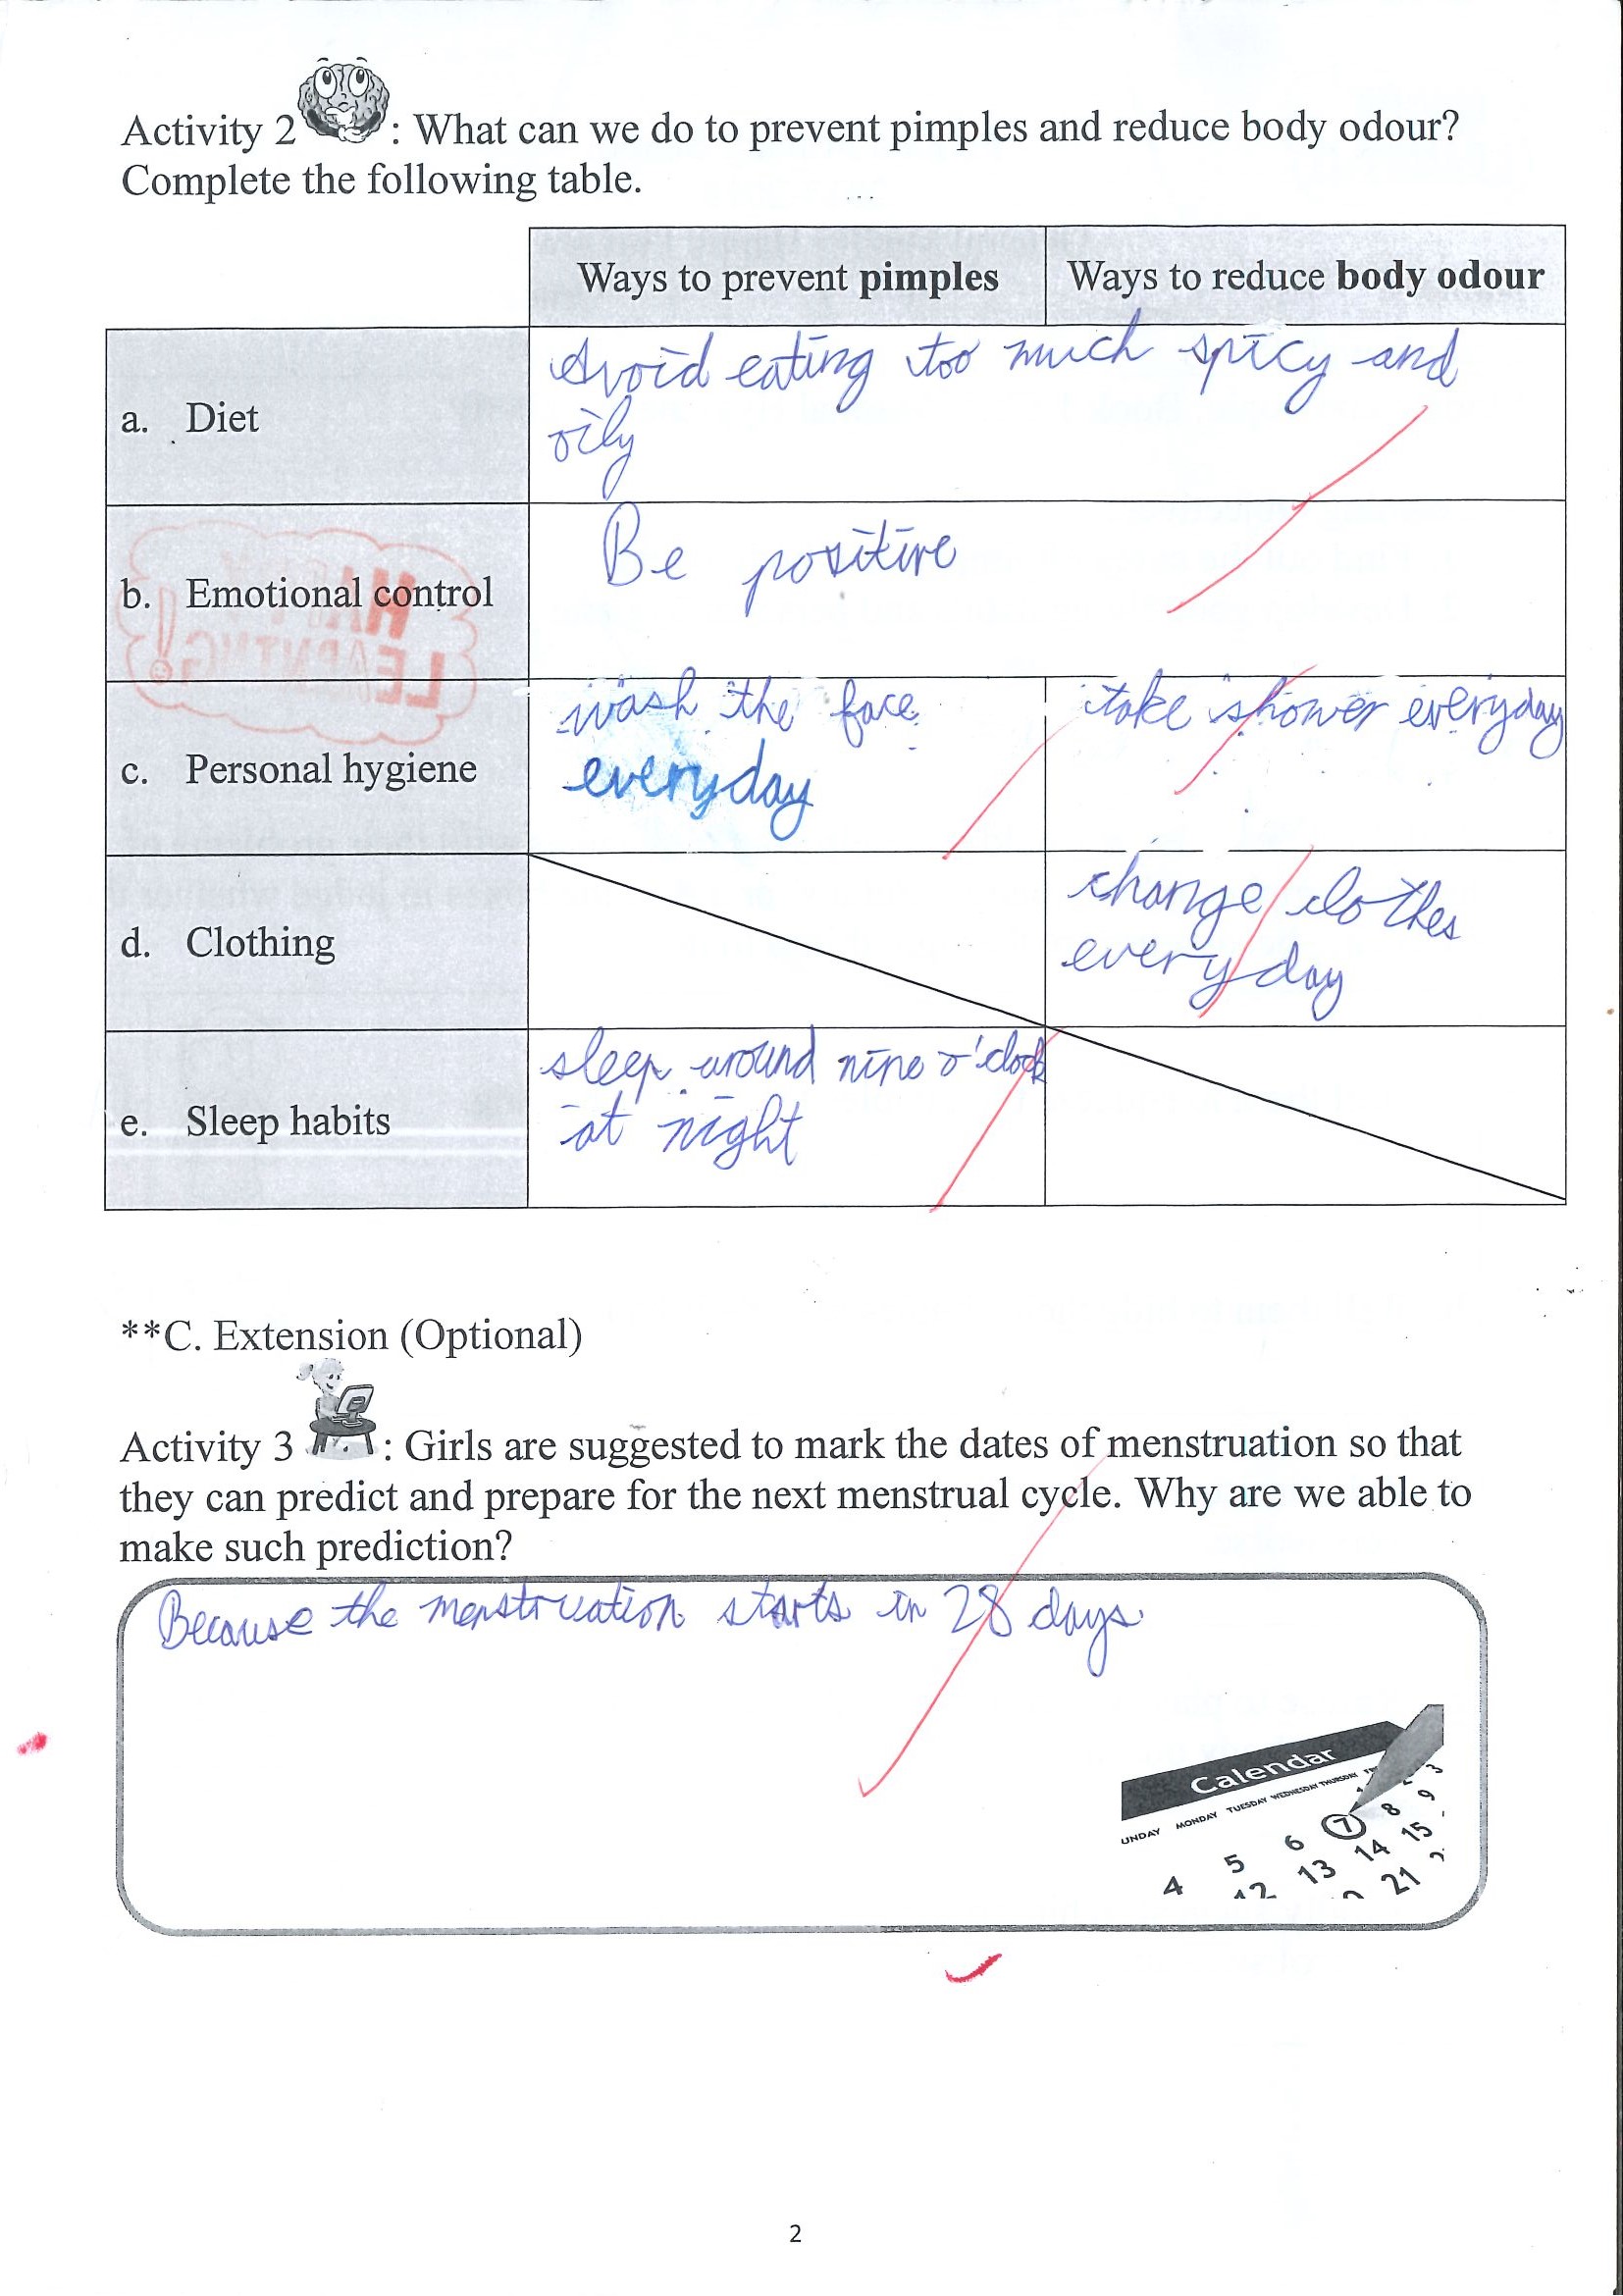 Activity 2 : What can we do to prevent pimples and reduce body odour?
Complete the following table.
Ways to prevent pimples Ways to reduce body odour
a. Diet
Avoid eating too much spicy and
oily
b. Emotional control
Be positive
HA
LEARNING!
c. Personal hygiene
wash the face
everyday
take shower everyday
d. Clothing
change clothes
everyday
e. Sleep habits
sleep around nine o'clock
at night
**C. Extension (Optional)
Activity 3 : Girls are suggested to mark the dates of menstruation so that
they can predict and prepare for the next menstrual cycle. Why are we able to
make such prediction?
Because the menstruation starts in 28 days
Calendar
UNDAY MONDAY TUESDAY WEDNESDAY THURSDAY
4 5 6 7 8 9
12 13 14 15
21
2